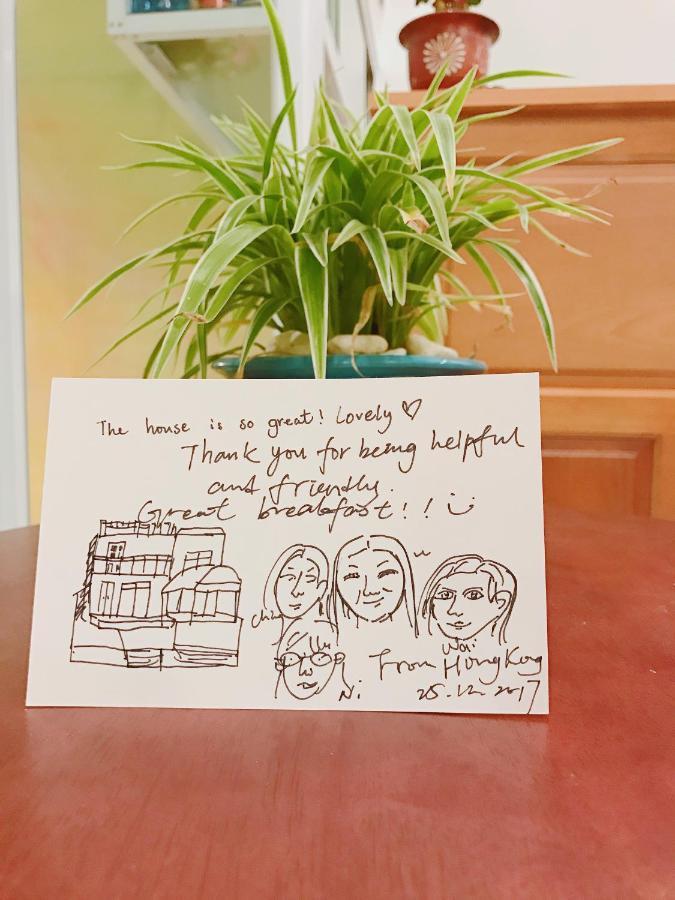 The house is so great! Lovely ♡
Thank you for being helpful
and friendly.
Great breakfast!!
Wai
Ni
From Hong Kong
25.12.2017